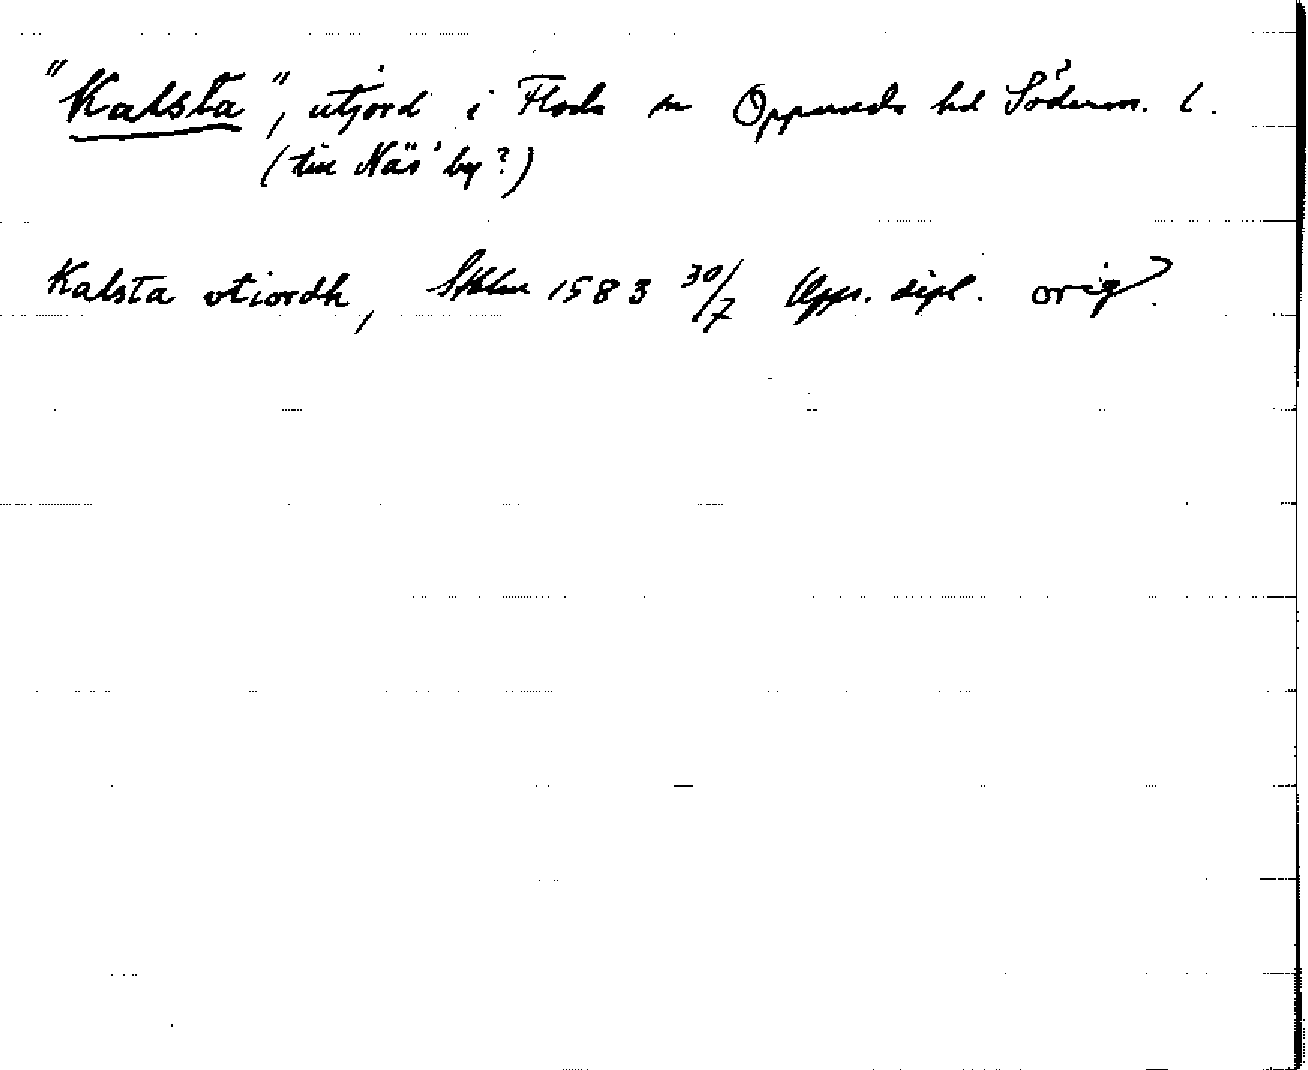 "Kalsta", utjord i Floda sn Oppunda hd Söderm. l.
(till Näs' by?)
Kalsta vtiordh, Sthlm 1583 30/7 Upps. dipl. orig.